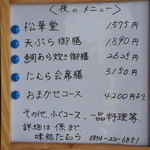 <夜のメニュー>
松華堂 1575円
天ぷら御膳 1,890円
鯛あら炊き御膳 2625円
たむら会席膳 3150円
おまかせコース 4200円より
その他、ふぐコース、一品料理等、
詳細は係まで
味処たむら 0854-22-6851